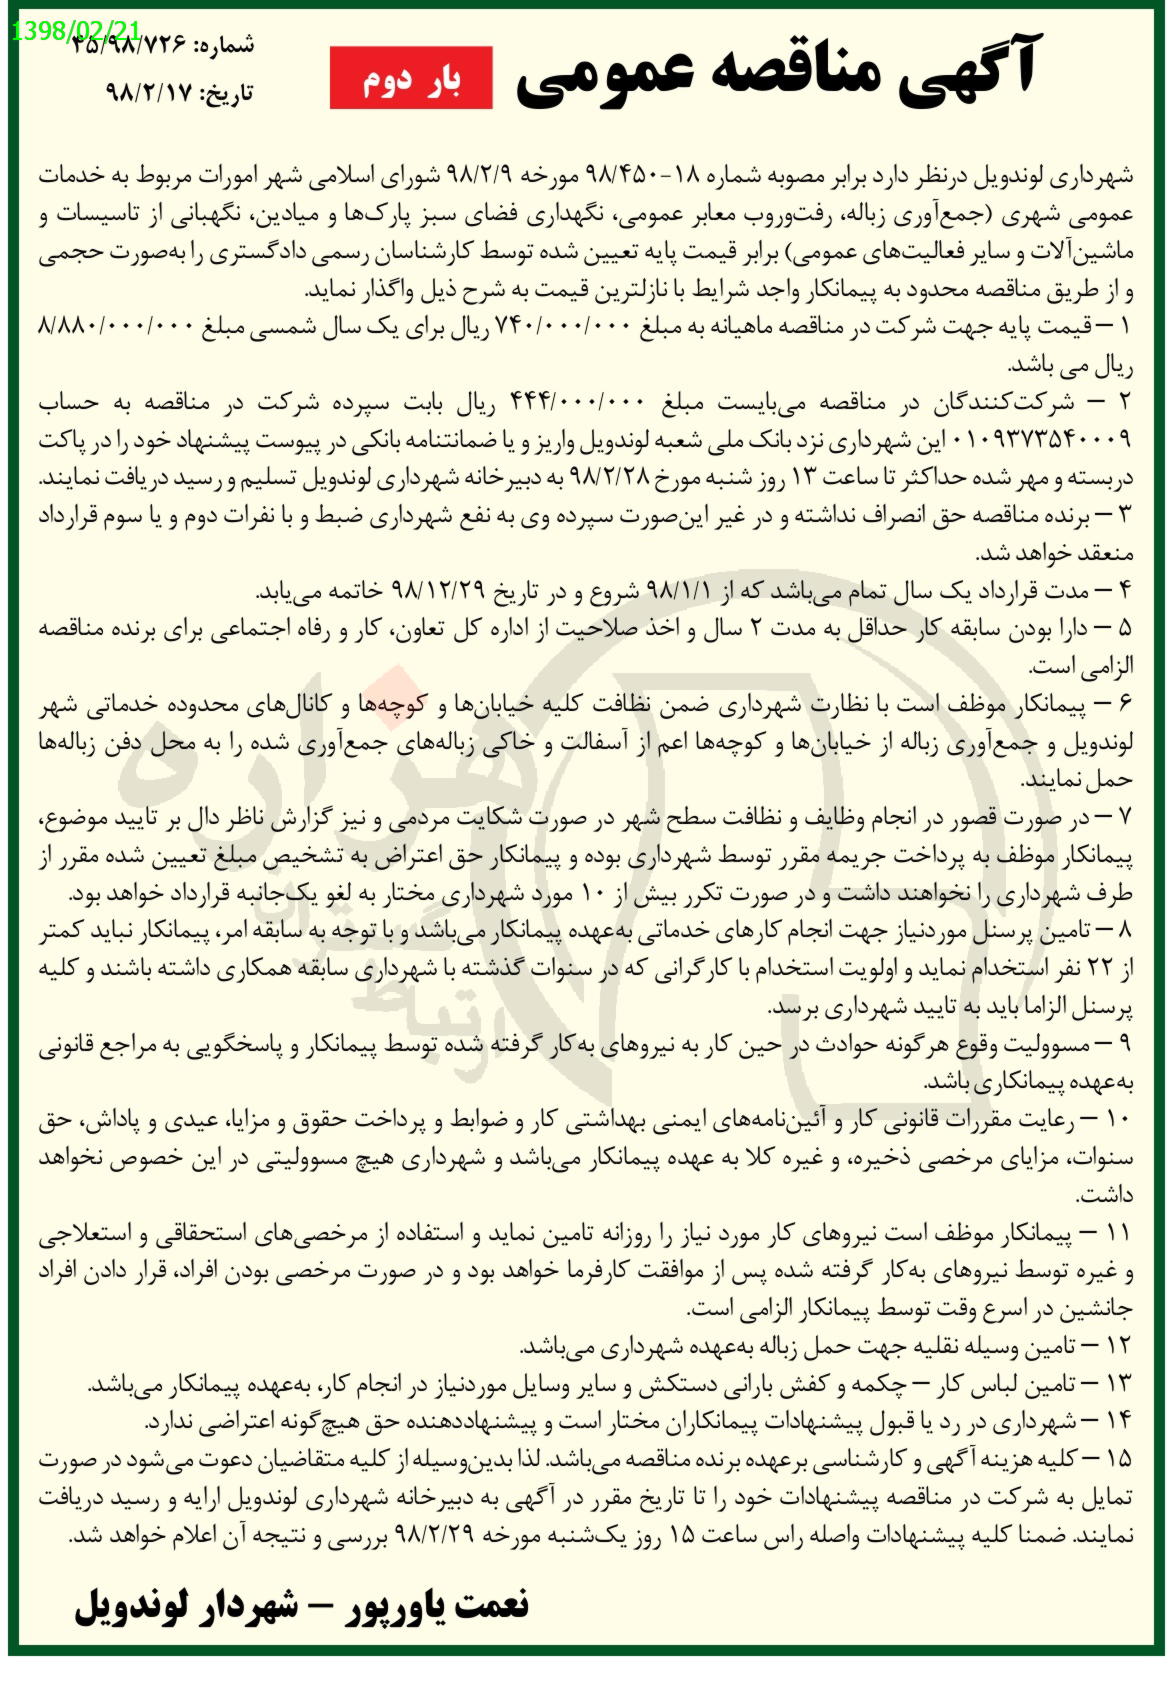 1398/02/21
شماره: ۴۵/۹۸/۷۲۶
تاریخ: ۹۸/۲/۱۷
آگهی مناقصه عمومی
بار دوم
شهرداری لوندویل درنظر دارد برابر مصوبه شماره ۱۸-۹۸/۴۵۰ مورخه ۹۸/۲/۹ شورای اسلامی شهر امورات مربوط به خدمات
عمومی شهری (جمع‌آوری زباله، رفت‌وروب معابر عمومی، نگهداری فضای سبز پارک‌ها و میادین، نگهبانی از تاسیسات و
ماشین‌آلات و سایر فعالیت‌های عمومی) برابر قیمت پایه تعیین شده توسط کارشناسان رسمی دادگستری را به‌صورت حجمی
و از طریق مناقصه محدود به پیمانکار واجد شرایط با نازلترین قیمت به شرح ذیل واگذار نماید.
۱ – قیمت پایه جهت شرکت در مناقصه ماهیانه به مبلغ ۷۴۰/۰۰۰/۰۰۰ ریال برای یک سال شمسی مبلغ ۸/۸۸۰/۰۰۰/۰۰۰
ریال می باشد.
۲ – شرکت‌کنندگان در مناقصه می‌بایست مبلغ ۴۴۴/۰۰۰/۰۰۰ ریال بابت سپرده شرکت در مناقصه به حساب
۰۱۰۹۳۷۳۵۴۰۰۰۹ این شهرداری نزد بانک ملی شعبه لوندویل واریز و یا ضمانتنامه بانکی در پیوست پیشنهاد خود را در پاکت
دربسته و مهر شده حداکثر تا ساعت ۱۳ روز شنبه مورخ ۹۸/۲/۲۸ به دبیرخانه شهرداری لوندویل تسلیم و رسید دریافت نمایند.
۳ – برنده مناقصه حق انصراف نداشته و در غیر این‌صورت سپرده وی به نفع شهرداری ضبط و با نفرات دوم و یا سوم قرارداد
منعقد خواهد شد.
۴ – مدت قرارداد یک سال تمام می‌باشد که از ۹۸/۱/۱ شروع و در تاریخ ۹۸/۱۲/۲۹ خاتمه می‌یابد.
۵ – دارا بودن سابقه کار حداقل به مدت ۲ سال و اخذ صلاحیت از اداره کل تعاون، کار و رفاه اجتماعی برای برنده مناقصه
الزامی است.
۶ – پیمانکار موظف است با نظارت شهرداری ضمن نظافت کلیه خیابان‌ها و کوچه‌ها و کانال‌های محدوده خدماتی شهر
لوندویل و جمع‌آوری زباله از خیابان‌ها و کوچه‌ها اعم از آسفالت و خاکی زباله‌های جمع‌آوری شده را به محل دفن زباله‌ها
حمل نمایند.
۷ – در صورت قصور در انجام وظایف و نظافت سطح شهر در صورت شکایت مردمی و نیز گزارش ناظر دال بر تایید موضوع،
پیمانکار موظف به پرداخت جریمه مقرر توسط شهرداری بوده و پیمانکار حق اعتراض به تشخیص مبلغ تعیین شده مقرر از
طرف شهرداری را نخواهند داشت و در صورت تکرر بیش از ۱۰ مورد شهرداری مختار به لغو یک‌جانبه قرارداد خواهد بود.
۸ – تامین پرسنل موردنیاز جهت انجام کارهای خدماتی به‌عهده پیمانکار می‌باشد و با توجه به سابقه امر، پیمانکار نباید کمتر
از ۲۲ نفر استخدام نماید و اولویت استخدام با کارگرانی که در سنوات گذشته با شهرداری سابقه همکاری داشته باشند و کلیه
پرسنل الزاما باید به تایید شهرداری برسد.
۹ – مسوولیت وقوع هرگونه حوادث در حین کار به نیروهای به‌کار گرفته شده توسط پیمانکار و پاسخگویی به مراجع قانونی
به‌عهده پیمانکاری باشد.
۱۰ – رعایت مقررات قانونی کار و آئین‌نامه‌های ایمنی بهداشتی کار و ضوابط و پرداخت حقوق و مزایا، عیدی و پاداش، حق
سنوات، مزایای مرخصی ذخیره، و غیره کلا به عهده پیمانکار می‌باشد و شهرداری هیچ مسوولیتی در این خصوص نخواهد
داشت.
۱۱ – پیمانکار موظف است نیروهای کار مورد نیاز را روزانه تامین نماید و استفاده از مرخصی‌های استحقاقی و استعلاجی
و غیره توسط نیروهای به‌کار گرفته شده پس از موافقت کارفرما خواهد بود و در صورت مرخصی بودن افراد، قرار دادن افراد
جانشین در اسرع وقت توسط پیمانکار الزامی است.
۱۲ – تامین وسیله نقلیه جهت حمل زباله به‌عهده شهرداری می‌باشد.
۱۳ – تامین لباس کار – چکمه و کفش بارانی دستکش و سایر وسایل موردنیاز در انجام کار، به‌عهده پیمانکار می‌باشد.
۱۴ – شهرداری در رد یا قبول پیشنهادات پیمانکاران مختار است و پیشنهاددهنده حق هیچ‌گونه اعتراضی ندارد.
۱۵ – کلیه هزینه آگهی و کارشناسی برعهده برنده مناقصه می‌باشد. لذا بدین‌وسیله از کلیه متقاضیان دعوت می‌شود در صورت
تمایل به شرکت در مناقصه پیشنهادات خود را تا تاریخ مقرر در آگهی به دبیرخانه شهرداری لوندویل ارایه و رسید دریافت
نمایند. ضمنا کلیه پیشنهادات واصله راس ساعت ۱۵ روز یک‌شنبه مورخه ۹۸/۲/۲۹ بررسی و نتیجه آن اعلام خواهد شد.
نعمت یاورپور – شهردار لوندویل
هزاره
ارتباط